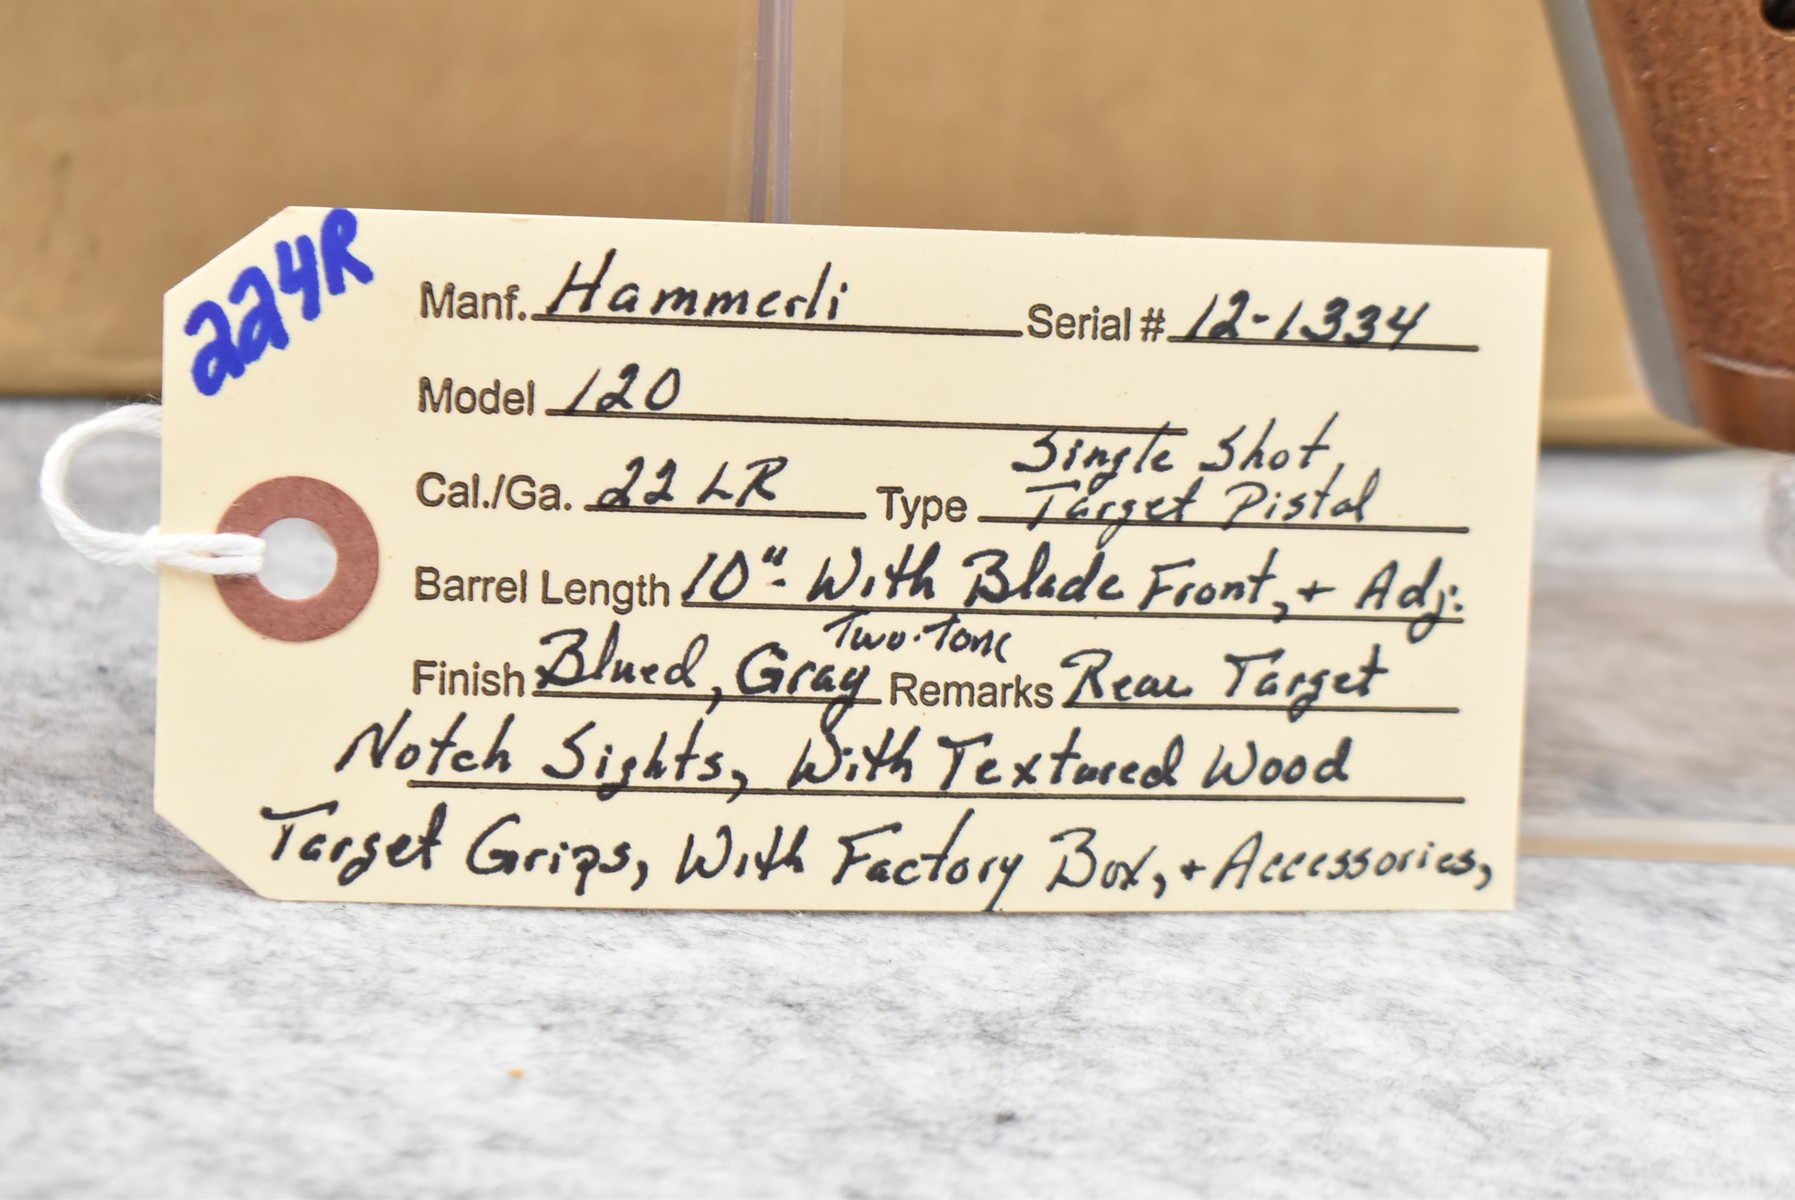 224R
Manf. Hammerli Serial # 12-1334
Model 120
Cal./Ga. 22 LR Type Single Shot, Target Pistol
Barrel Length 10" - With Blade Front, + Adj.
Finish Blued, Gray Two-Tone Remarks Rear Target
Notch Sights, With Textured Wood
Target Grips, With Factory Box, + Accessories,